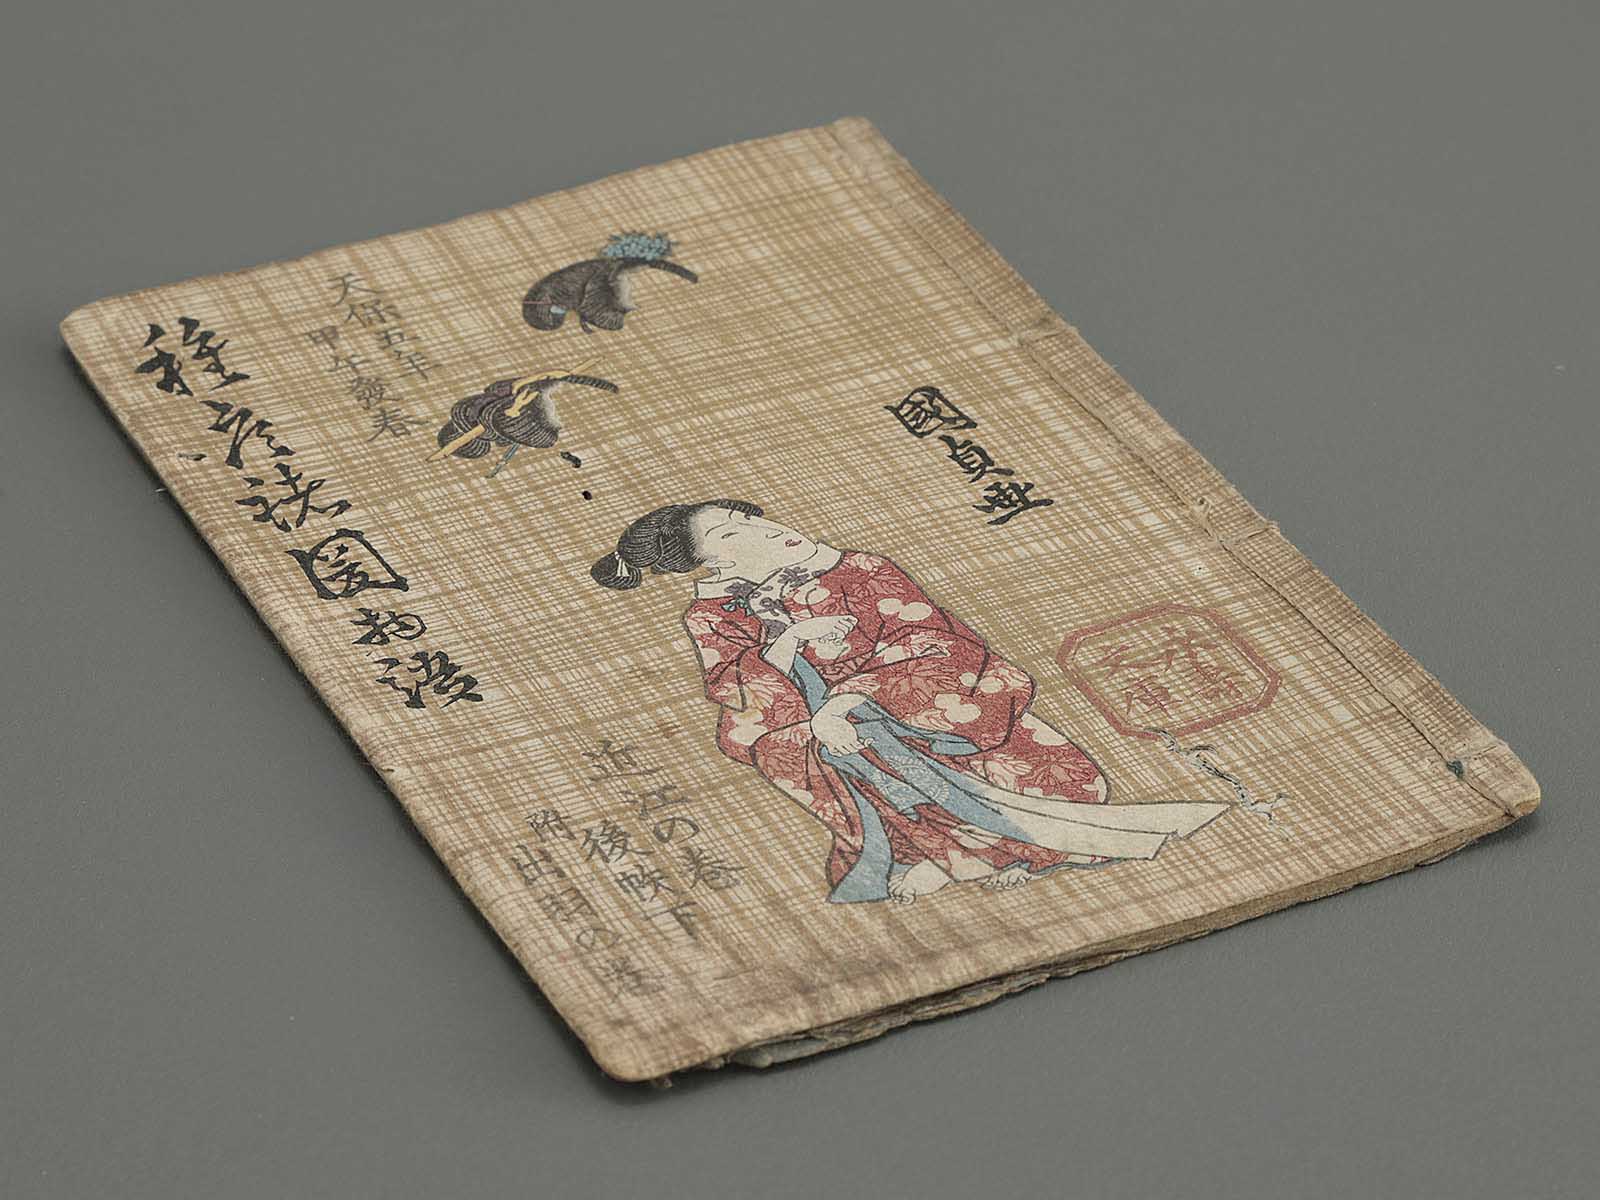 國貞画
永壽
文庫
天保五年
甲午發春
近江の巻
後帙下
附出羽の巻
種彦諸國物語